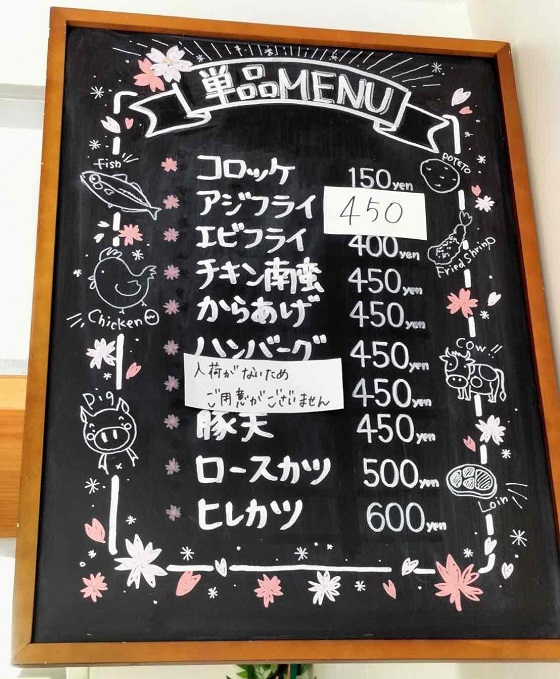 単品MENU
コロッケ 150yen
アジフライ 450
エビフライ 400yen
チキン南蛮 450yen
からあげ 450yen
ハンバーグ 450yen
入荷がないため
ご用意がございません
450yen
豚天 450yen
ロースカツ 500yen
ヒレカツ 600yen
fish
Chicken
Pig
POTETO
Fried Shrimp
Cow!!
Loin